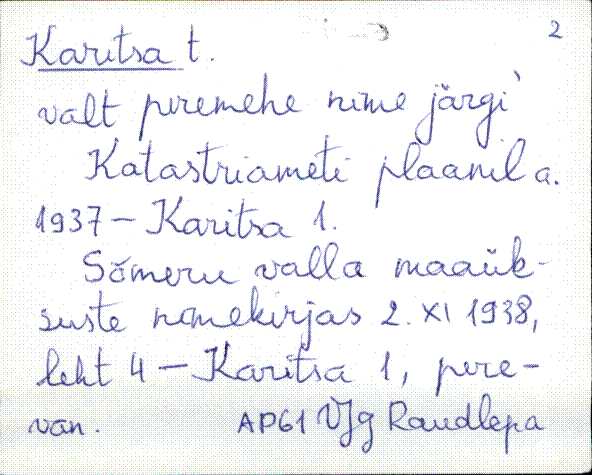 2
Karitsa t.
valt peremehe nime järgi
Katastriameti plaanil a.
1937 – Karitsa 1.
Sõmeru valla maaük-
suste nimekirjas 2. XI 1938,
leht 4 – Karitsa 1, pere-
van. AP61 VJg Raudlepa